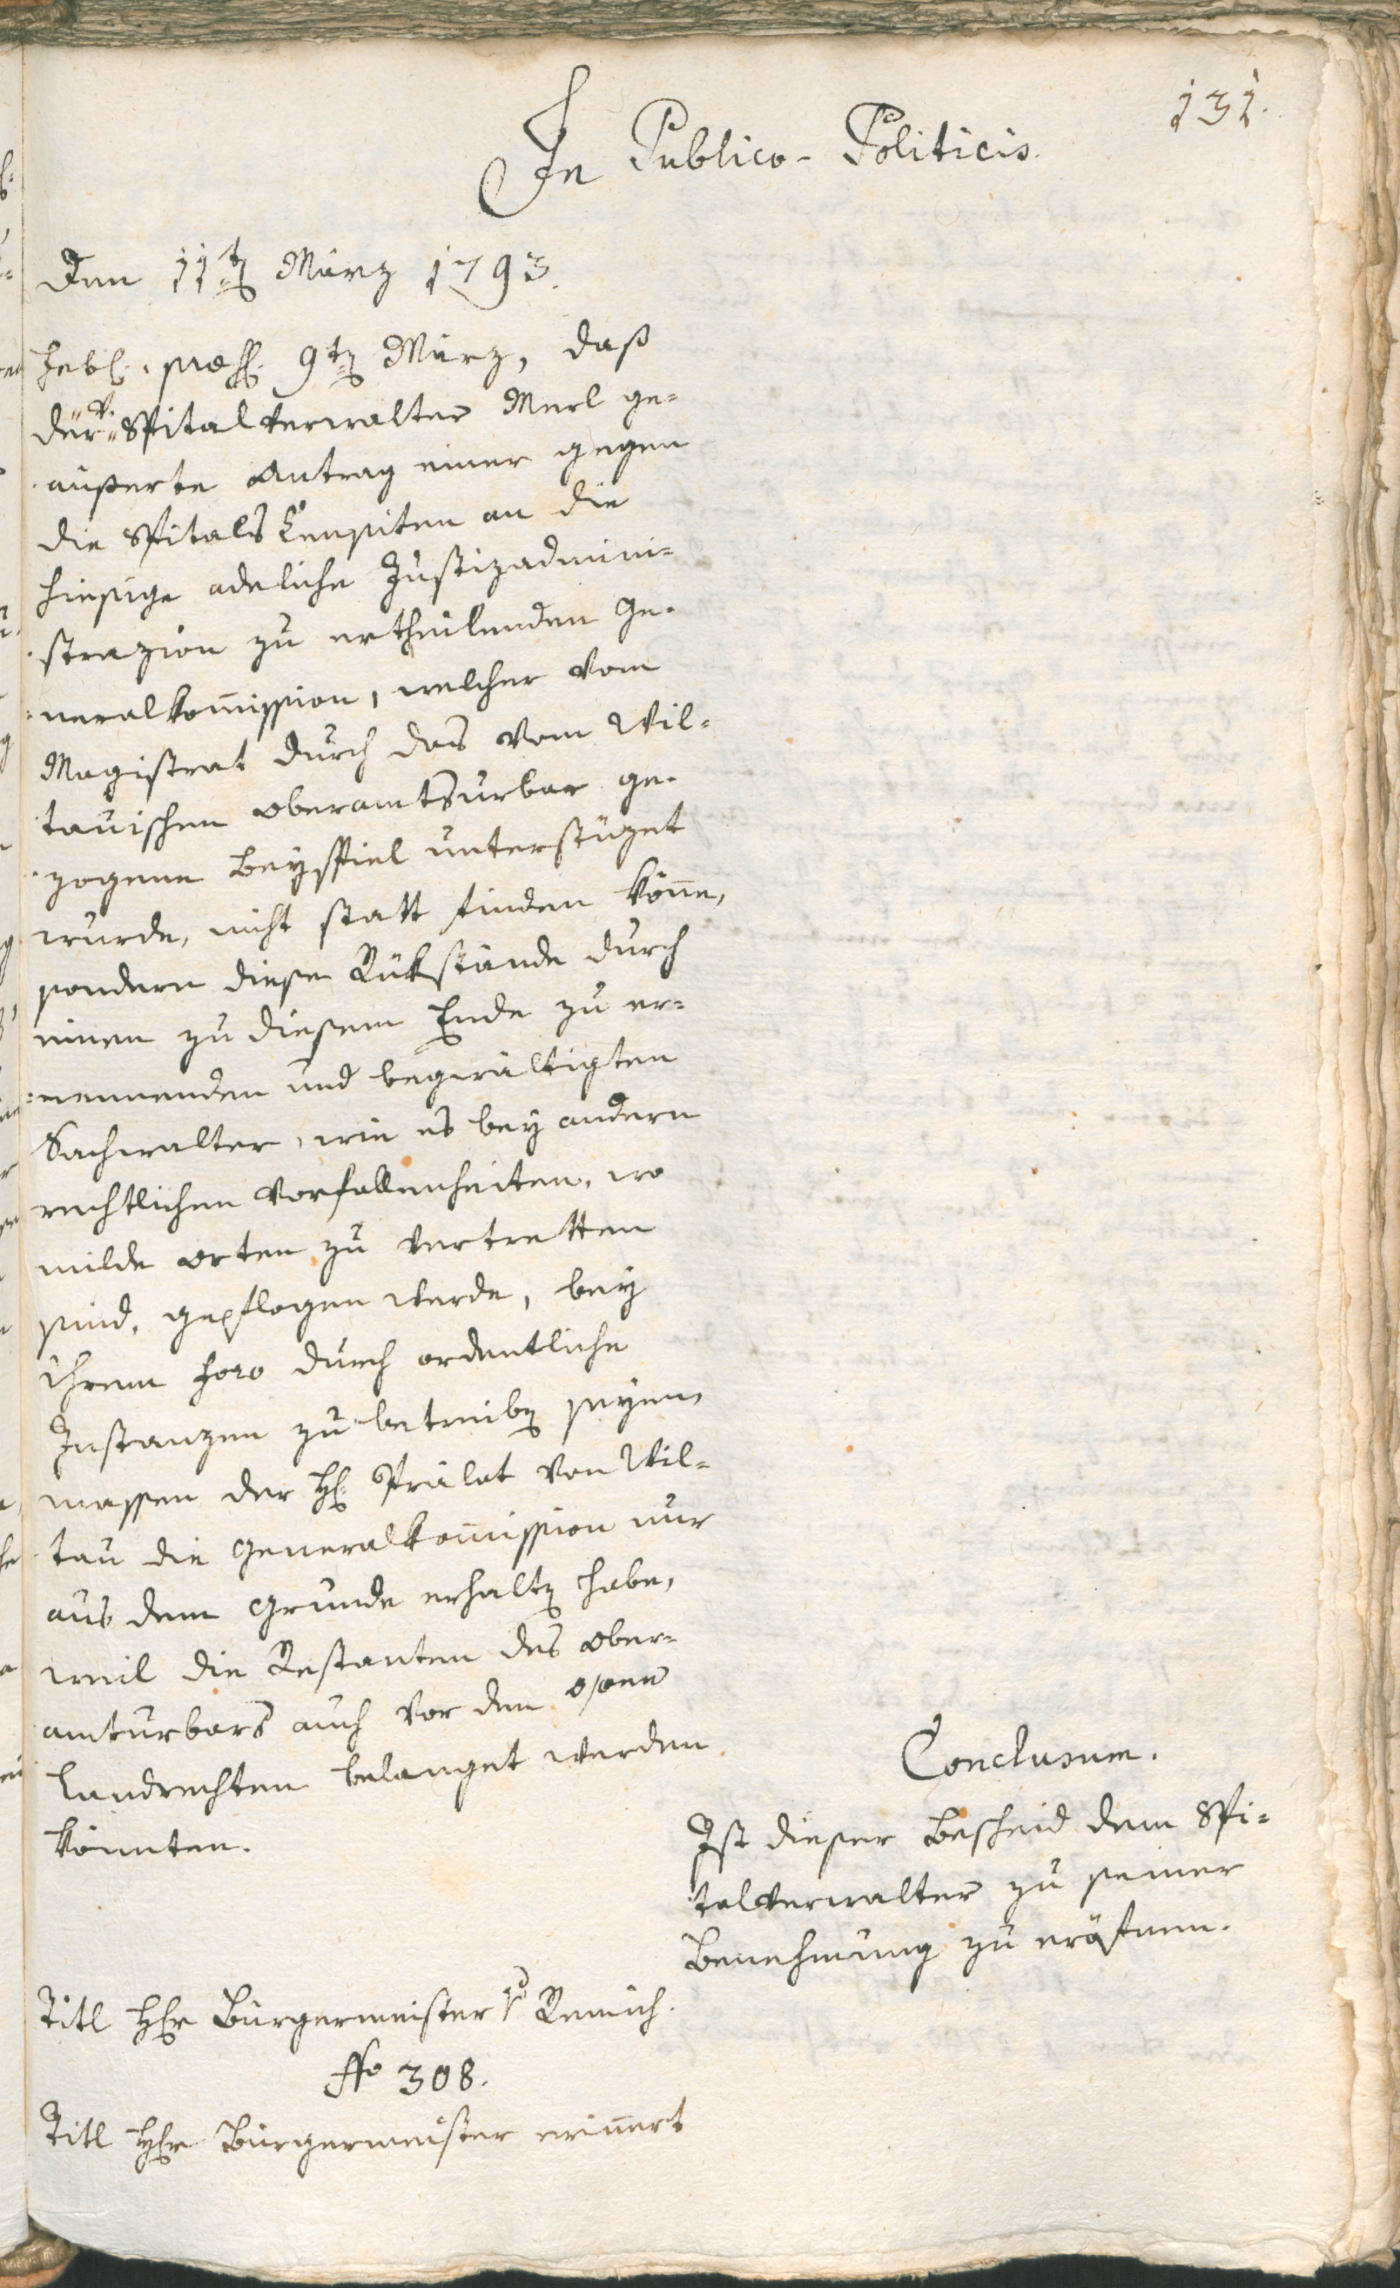 131.
In Publico-Politicis.
Den 11ten März 1793.
præs. 9ten März, daß
der v. Spitalverwalter Merl ge¬
äußerte Antrag einer gegen
die Spitals Censiten an die
hiesige adeliche Justizadmini¬
strazion zu ertheilenden Ge¬
neralkom̄ission, welcher vom
Magistrat durch das vom Wil¬
tauischen Oberamtsurbar ge¬
zogene Beyspiel unterstüzet
wurde, nicht statt finden kön̄e,
sondern diese Rükstände durch
einen zu diesem Ende zu er¬
nennenden und begwältigten
Sachwalter, wie es bey andern
rechtlichen Vorfallenheiten, wo
milde Orten zu vertretten
sind, gepflogen werde, bey
Ihrem Foro durch ordentliche
Instanzen zu betreiben seyen,
massen der H: Prälat von Wil¬
tau die Generalkom̄ission nur
aus dem Grunde erhalten habe,
weil die Restanten des Ober¬
amturbars auch vor den
Landrechten belanget werden
könnten.
Conclusum.
Ist dieser Bescheid dem Spi¬
talverwalter zu seiner
Benehmung zu eröfnen.
Titl Herr Bürgermeister Remich.
No 308.
Titl Herr Bürgermeister erin̄ert